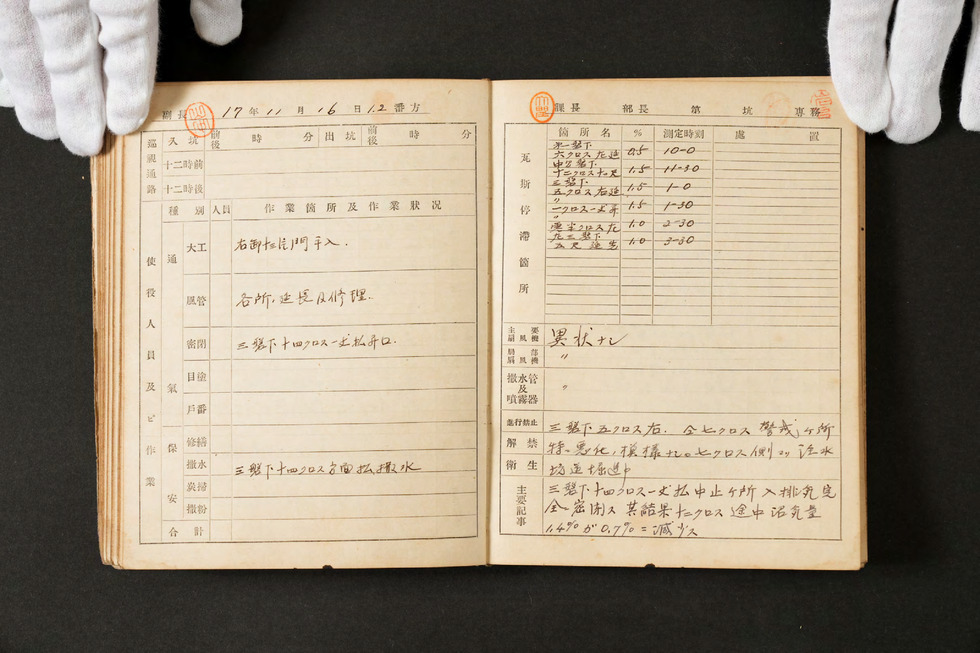 副長 17年11月16日1.2番方
巡視通路 入坑 前後 時 分 出坑 前後 時 分
十二時前
十二時後
使役人員及ビ作業 種別 人員 作業箇所及作業状况
通氣
大工 門手入.
風管 各所,延長及修理.
密閉 三盤下十四クロス一丈払卸口.
目塗
戸番
保安
修繕
撒水 三盤下十四クロス方面払撒水
炭掃
撒粉
合計
課長 部長 第 坑 専務
瓦斯停滞箇所 箇所名 % 測定時刻 處置
第一盤下
六クロス左延 0.5 10-0
十二クロス 1.5 11-30
三盤下
五クロス右延 1.5 1-0
〃
一クロス一丈昇 1.5 1-30
〃
クロス左 1.0 2-30
1.0 3-30
主要扇風機 異状ナシ
局部扇風機 〃
撒水管及噴霧器 〃
進行禁止 三盤下五クロス右. 仝七クロス 警戒ヶ所
解禁 特ニ悪化,模様ナシ。七クロス側ヨリ注水
衛生 坑道掘進中
主要記事 三盤下十四クロス一丈払中止ヶ所入排気完
全密閉ス 其結果十二クロス途中沼気量
1.4%ガ0.7%ニ減少ス